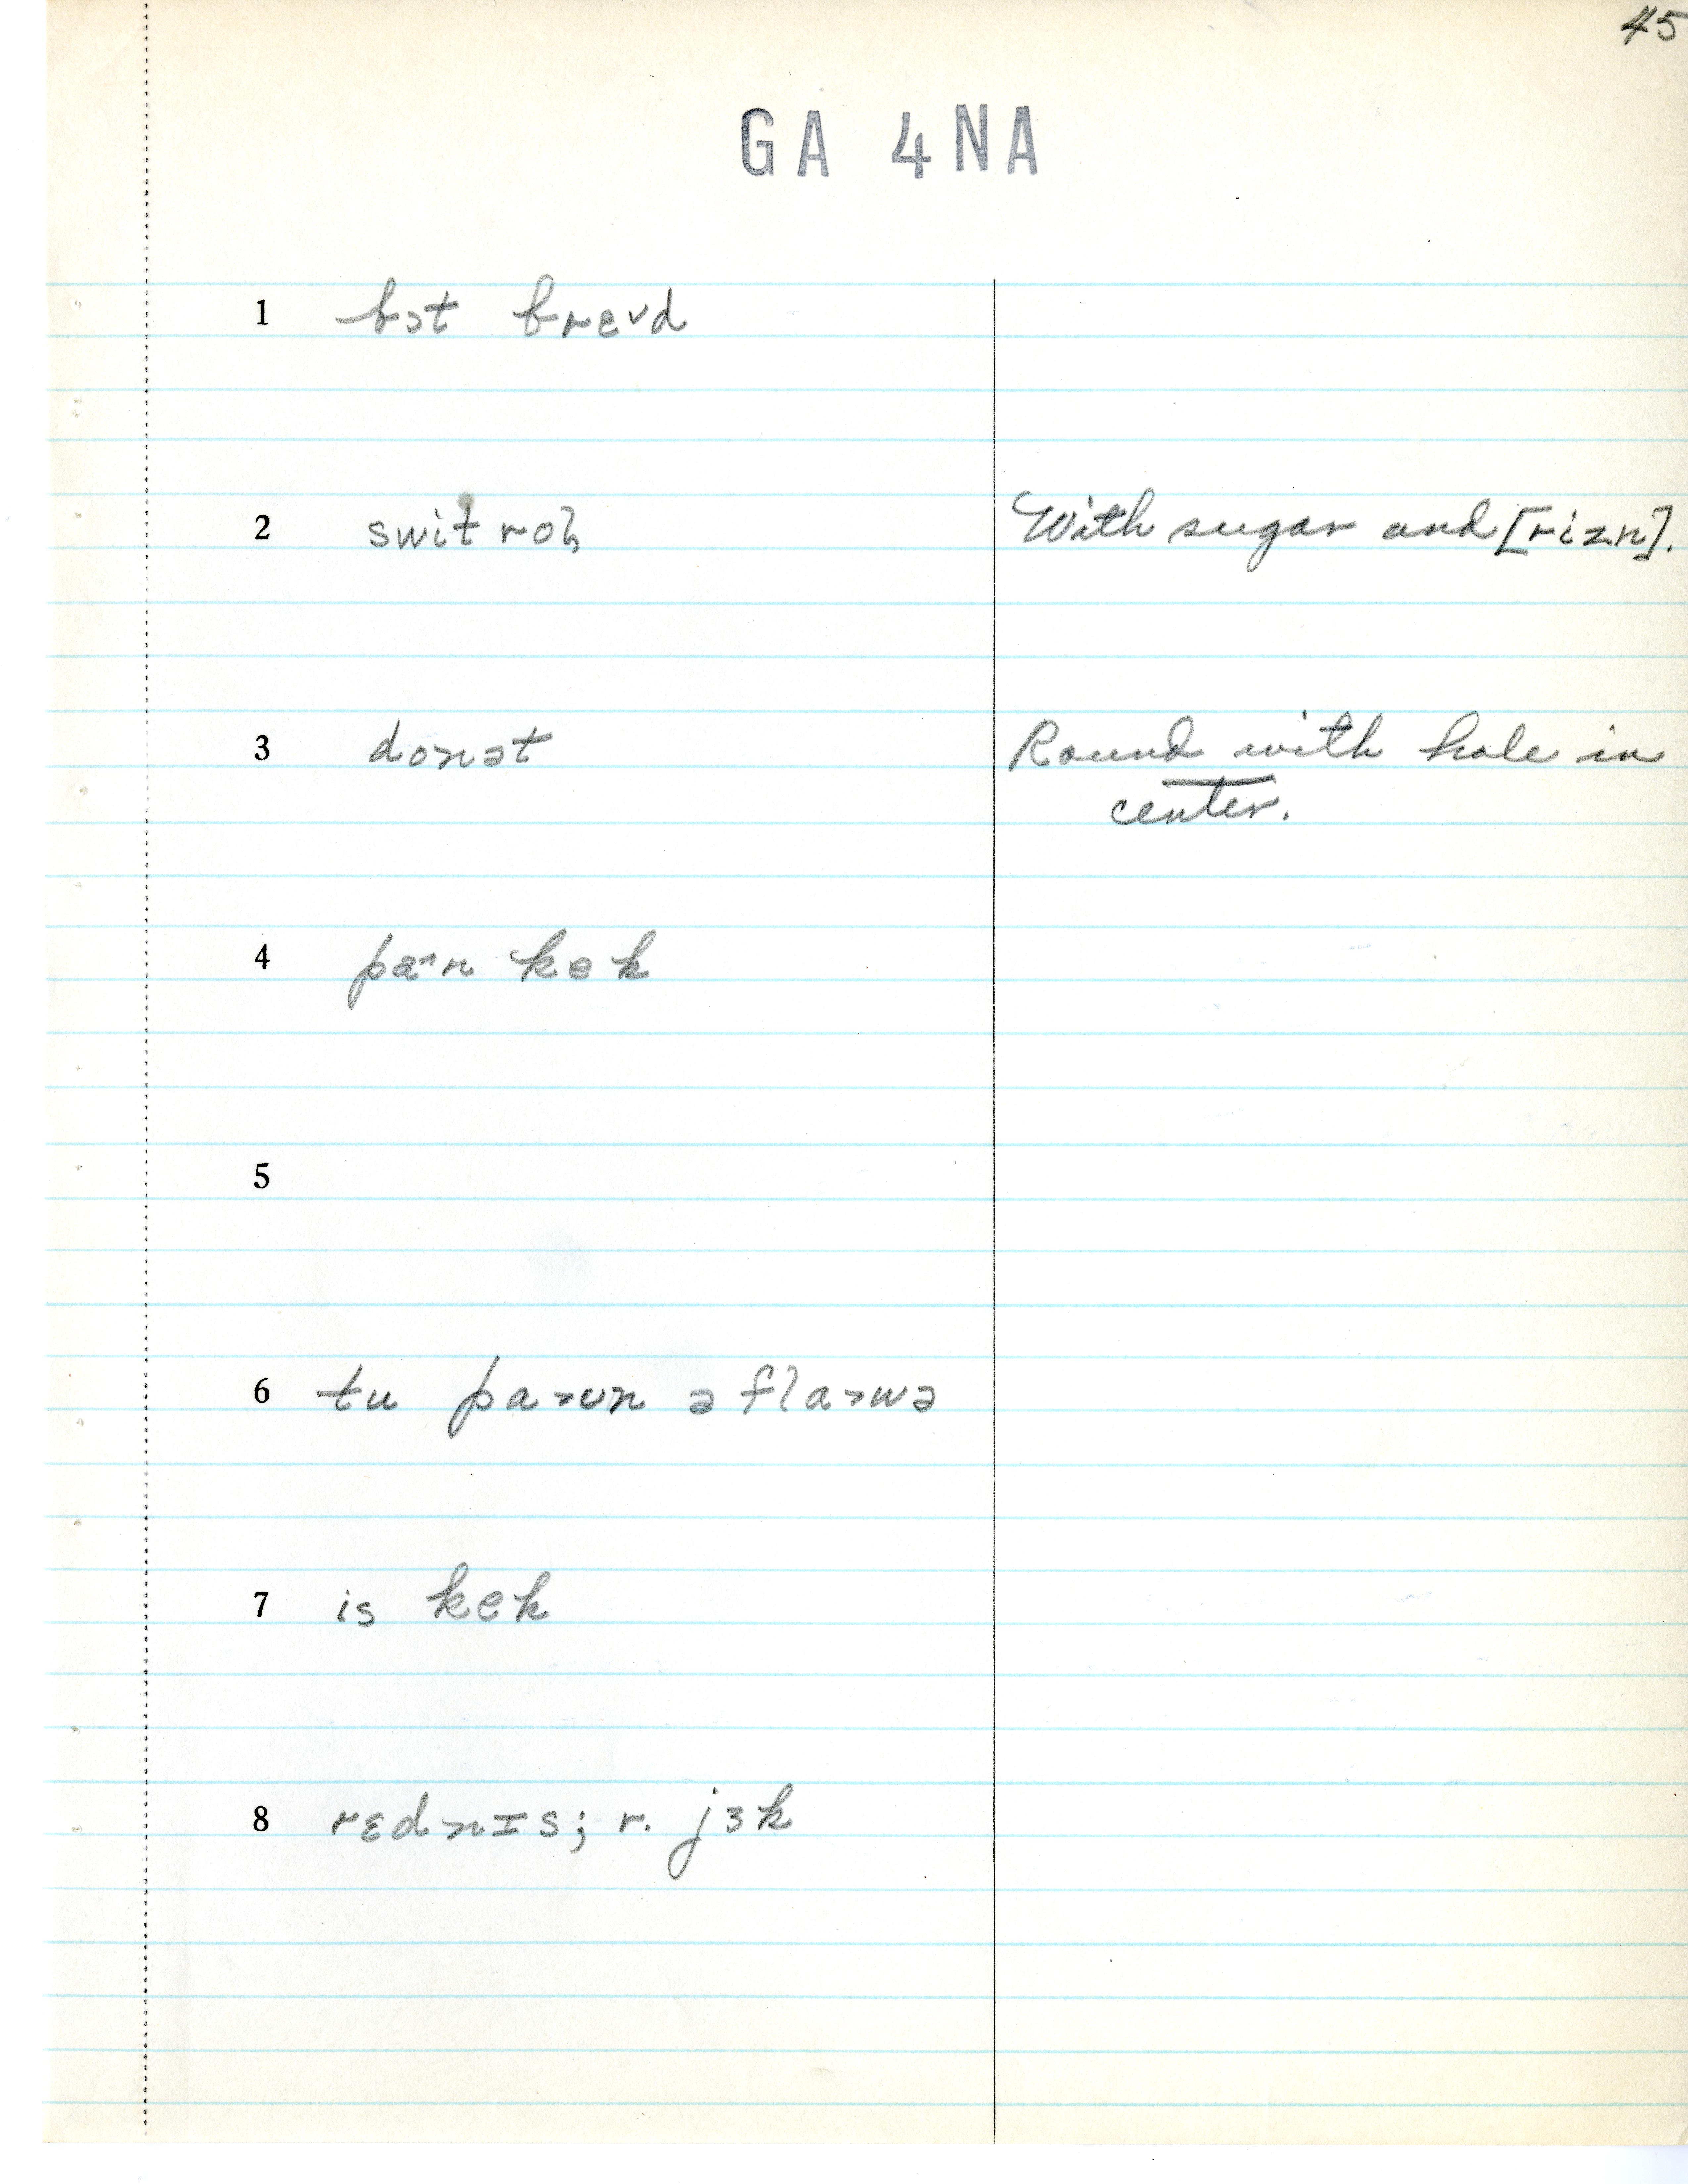 45
GA 4NA
1 bɔt brɛvd
2 swit roɫ With sugar and [rizn].
3 donət Round with hole in
center.
4 pæ^n kek
5
6 tu pa>ʊn ə fla>wə
7 is kek
8 rɛdnɪs; r. jɜk